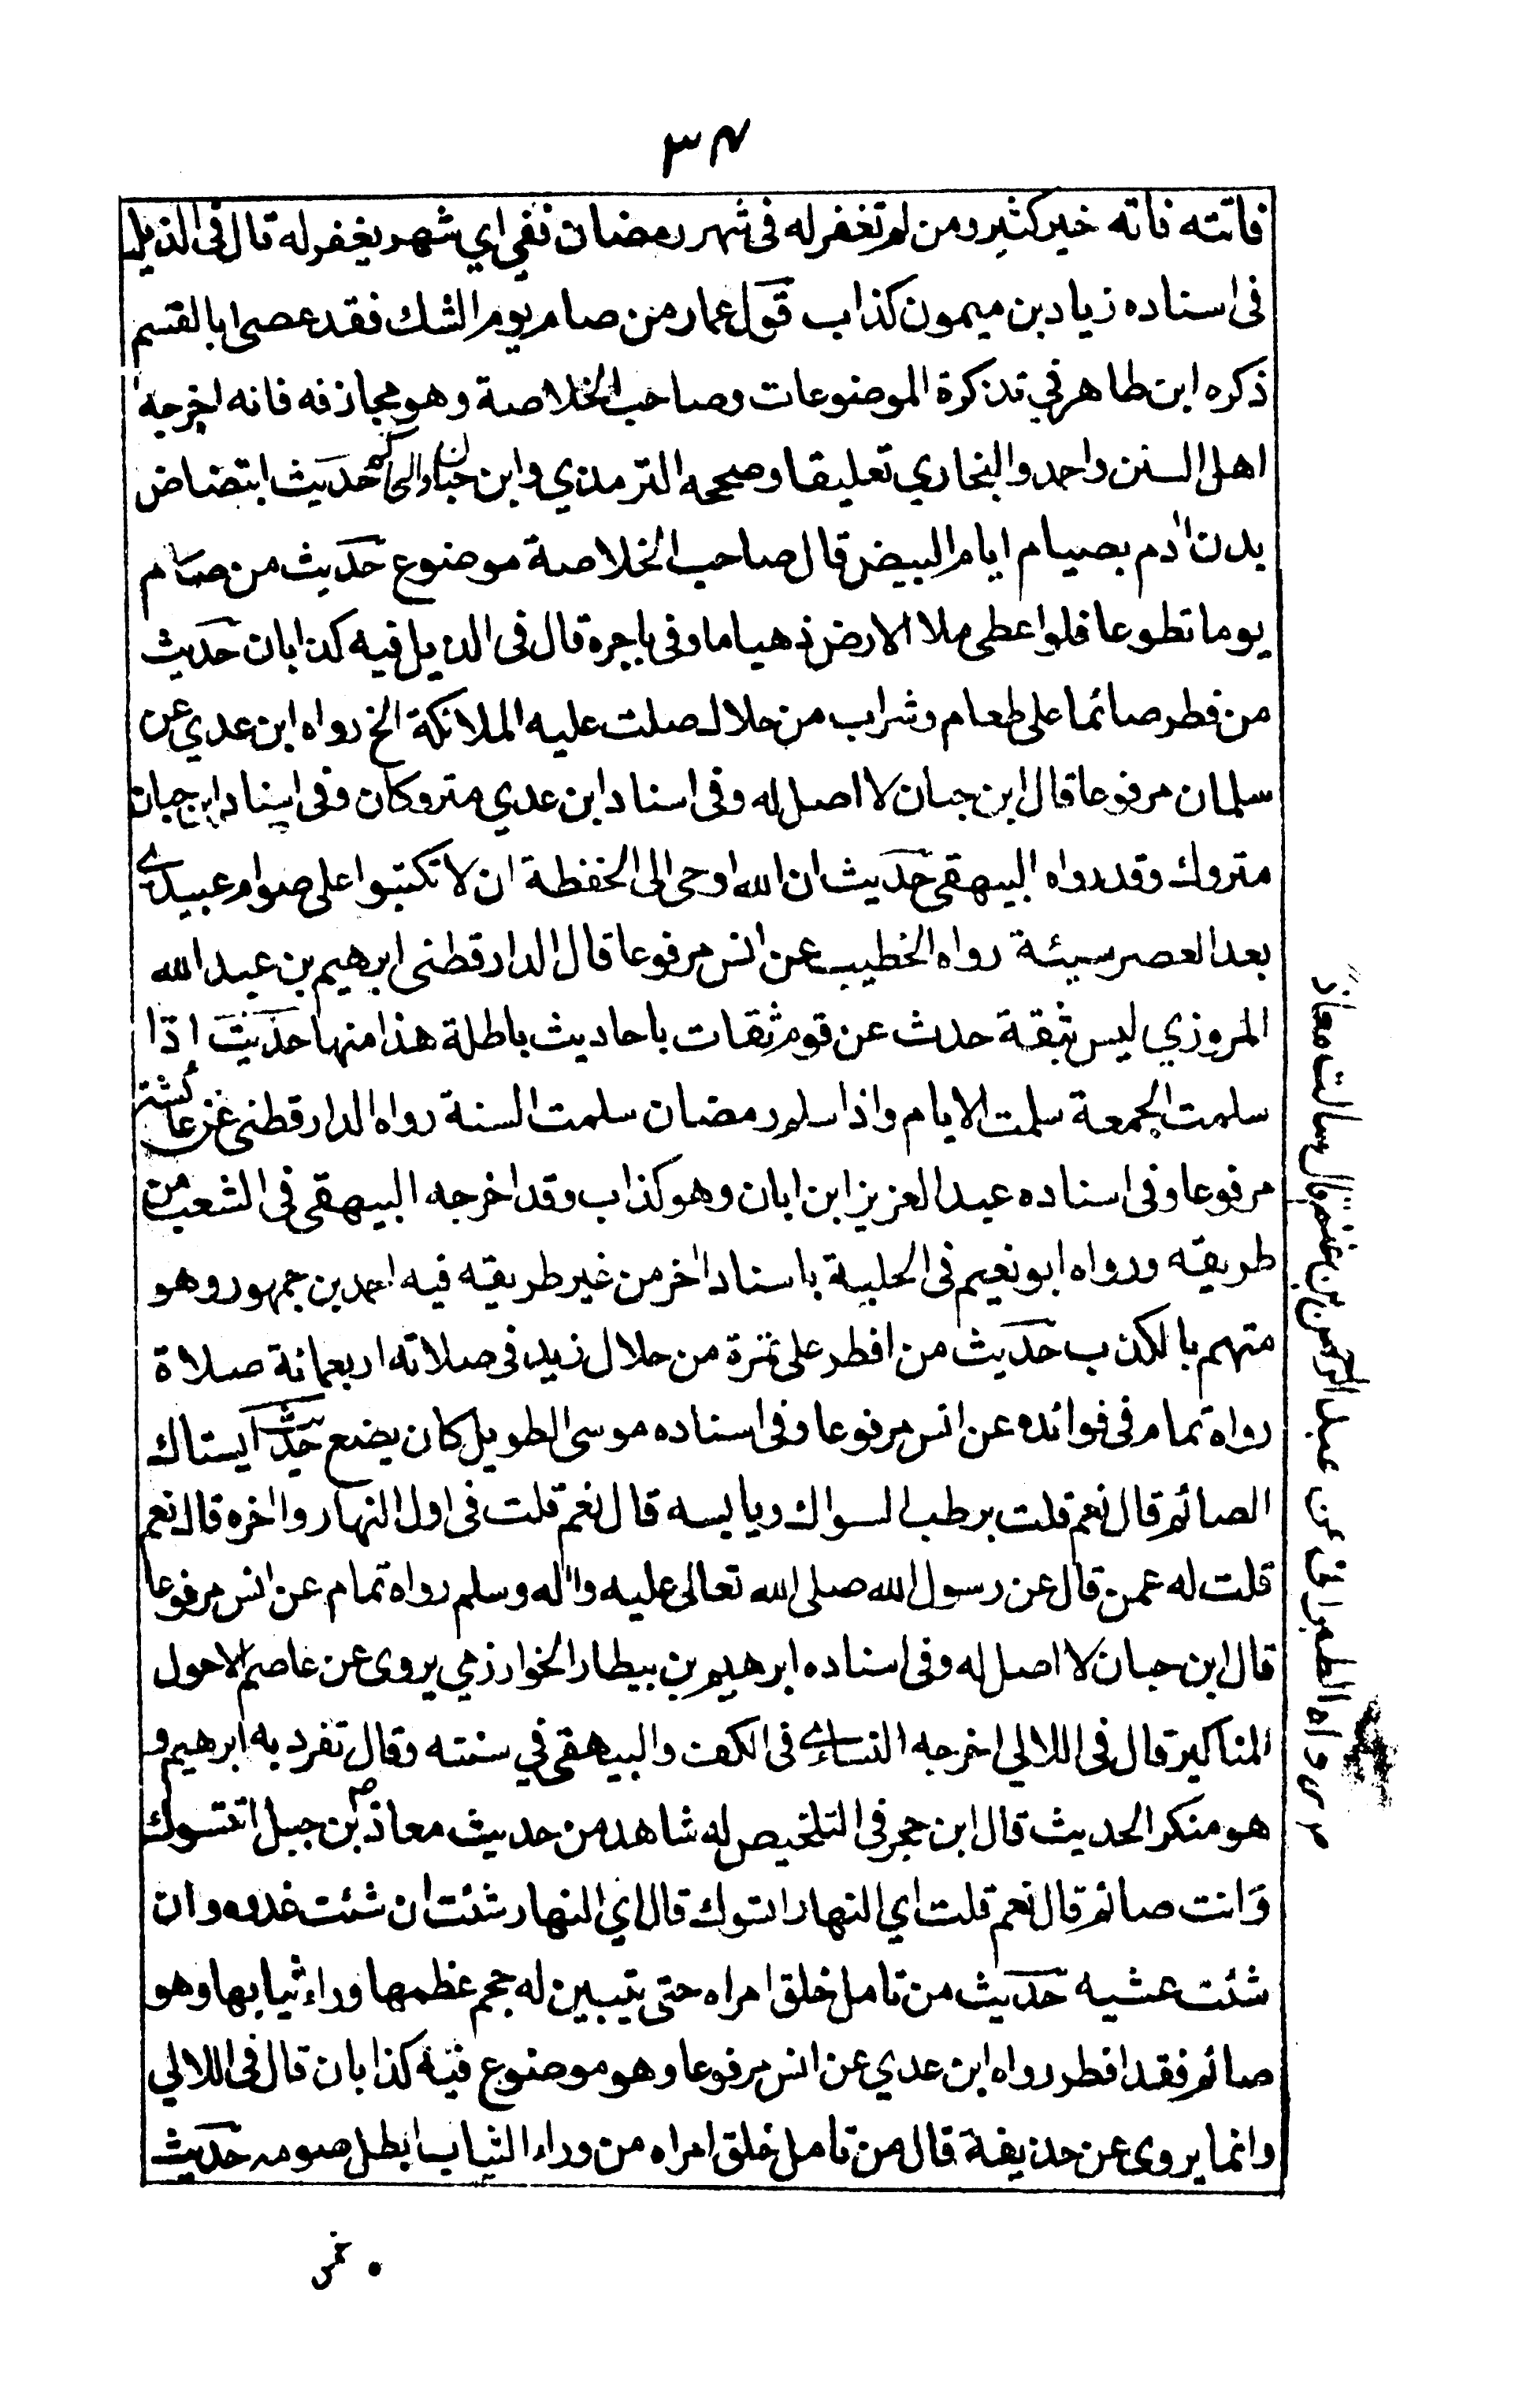 ٣٤
فاتته فاته خير كثير ومن لم تغفر له فى شهر رمضان ففي اي شهر يغفر له قال فى الذيل
فى اسناده زياد بن ميمون كذاب قول عمار من صام يوم الشك فقد عصى ابا القسم
ذكره ابن طاهر في تذكرة الموضوعات وصاحب الخلاصة وهو مجازفه فانه اخرجه
اهل السنن واحمد والبخاري تعليقا وصححه الترمذي وابن حبان والحاكم حديث ابتضاض
بدن ادم بصيام ايام البيض قال صاحب الخلاصة موضوع حديث من صام
يوما تطوعا فلو اعطى ملا الارض ذهبا ما وفى باجره قال فى الذيل فيه كذابان حديث
من فطر صائما على طعام وشراب من حلال صلت عليه الملائكة الخ رواه ابن عدي عن
سلمان مرفوعا قال ابن حبان لا اصل له وفى اسناد ابن عدي متروكان وفى اسناد ابن حبان
متروك وقد رواه البيهقى حديث ان الله اوحى الى الحفظة ان لا تكتبوا على صوام عبيدي
بعد العصر سيئة رواه الخطيب عن انس مرفوعا قال الدارقطنى ابرهيم بن عبد الله
المروزي ليس بثقة حدث عن قوم ثقات باحاديث باطلة هذا منها حديث اذا
سلمت الجمعة سلمت الايام واذا سلم رمضان سلمت السنة رواه الدارقطنى عن عائشة
مرفوعا وفى اسناده عبد العزيز ابن ابان وهو كذاب وقد اخرجه البيهقى فى الشعب من
طريقه ورواه ابو نعيم فى الحلية باسناد اخر من غير طريقه فيه احمد بن جمهور وهو
متهم بالكذب حديث من افطر على تمرة من حلال زيد فى صلاته اربعمائة صلاة
رواه تمام فى فوائده عن انس مرفوعا وفى اسناده موسى الطويل كان يضع حديث ايستاك
الصائم قال نعم قلت برطب السواك ويابسه قال نعم قلت فى اول النهار واخره قال نعم
قلت له عمن قال عن رسول الله صلى الله تعالى عليه واله وسلم رواه تمام عن انس مرفوعا
قال ابن حبان لا اصل له وفى اسناده ابرهيم بن بيطار الخوارزمي يروى عن عاصم الاحول
المناكير قال فى اللالي اخرجه النساءي فى الكف والبيهقى في سننه وقال تفرد به ابرهيم و
هو منكر الحديث قال ابن حجر فى التلخيص له شاهد من حديث معاذ بن جبل اتتسوك
وانت صائم قال نعم قلت اي النهار اتسوك قال اي النهار شئت ان شئت غدوه وان
شئت عشيه حديث من تامل خلق امراه حتى يتبين له حجم عظمها وراء ثيابها وهو
صائم فقد افطر رواه ابن عدي عن انس مرفوعا وهو موضوع فيه كذابان قال فى اللالي
وانما يروى عن حذيفة قال من تامل خلق امراه من وراء الثياب ابطل صومه حديث
رواه الطبرانى عن عبد الرحمن بن غنم قال سالت معاذ